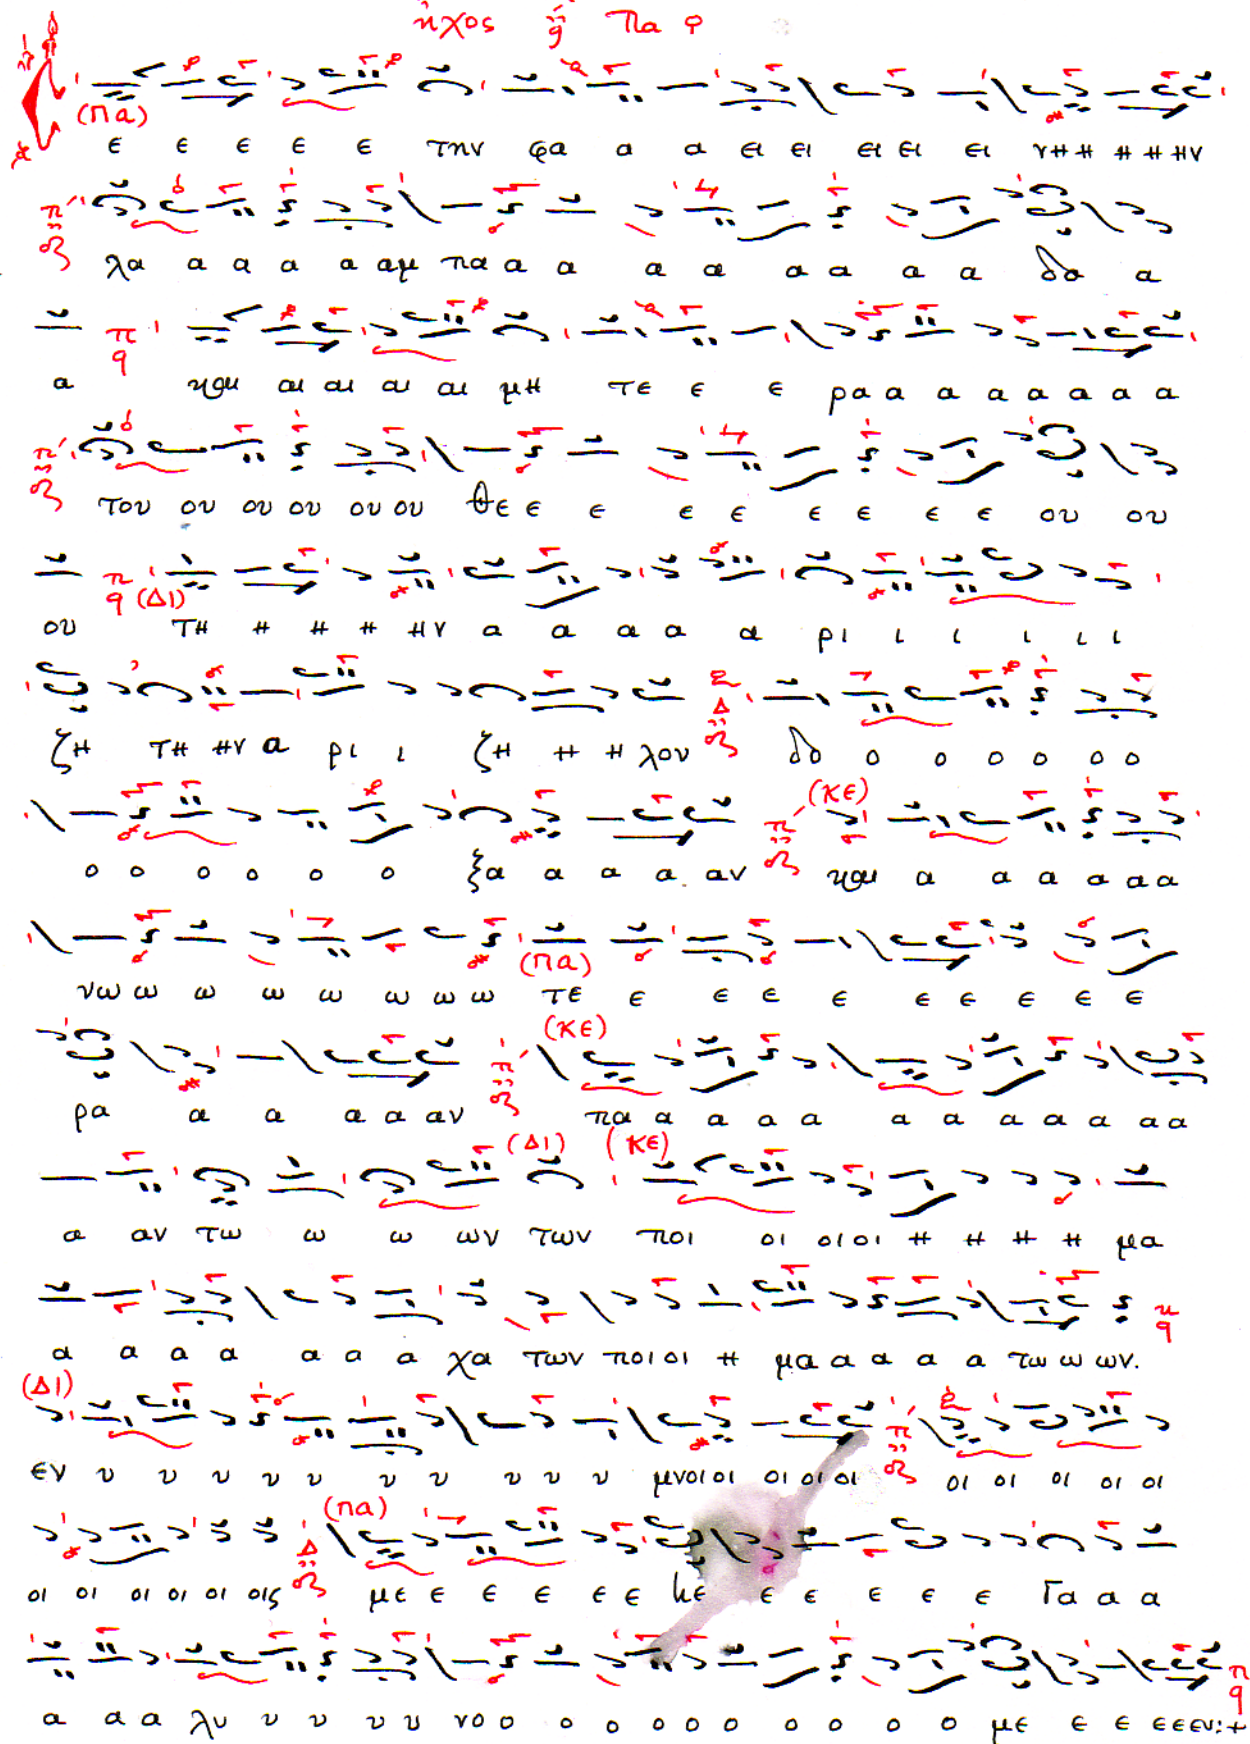 ἦχος π̈ q Πα
(Πα)
ε ε ε ε ε την φα α α ει ει ει ει ει νη η η η ην
λα α α α α αμ πα α α α α α α α α δα α
α και αι αι αι αι μη τε ε ε ρα α α α α α α α
του ου ου ου ου ου θε ε ε ε ε ε ε ε ε ου ου
(Δι)
ου τη η η η ην α α α α α ρι ι ι ι ι ι
ζη τη ην α ρι ι ζη η η λον δο ο ο ο ο ο ο
(κε)
ο ο ο ο ο ο ξα α α α αν και α α α α α
(Πα)
νω ω ω ω ω ω ω ω τε ε ε ε ε ε ε ε ε ε
(κε)
ρα α α α α αν πα α α α α α α α α α α α
(Δι) (κε)
α αν τω ω ω ων των ποι οι οι οι η η η η μα
α α α α α α α χα των ποι οι η μα α α α α τω ω ων.
(Δι)
εν υ υ υ υ υ υ υ υ υ υ μνοι οι οι οι οι οι οι οι οι οι
(πα)
οι οι οι οι οι οις με ε ε ε ε ε ε ε ε ε ε Γα α α
α α α λυ υ υ υ υ νο ο ο ο ο ο ο ο ο ο ο με ε ε ε ε εν